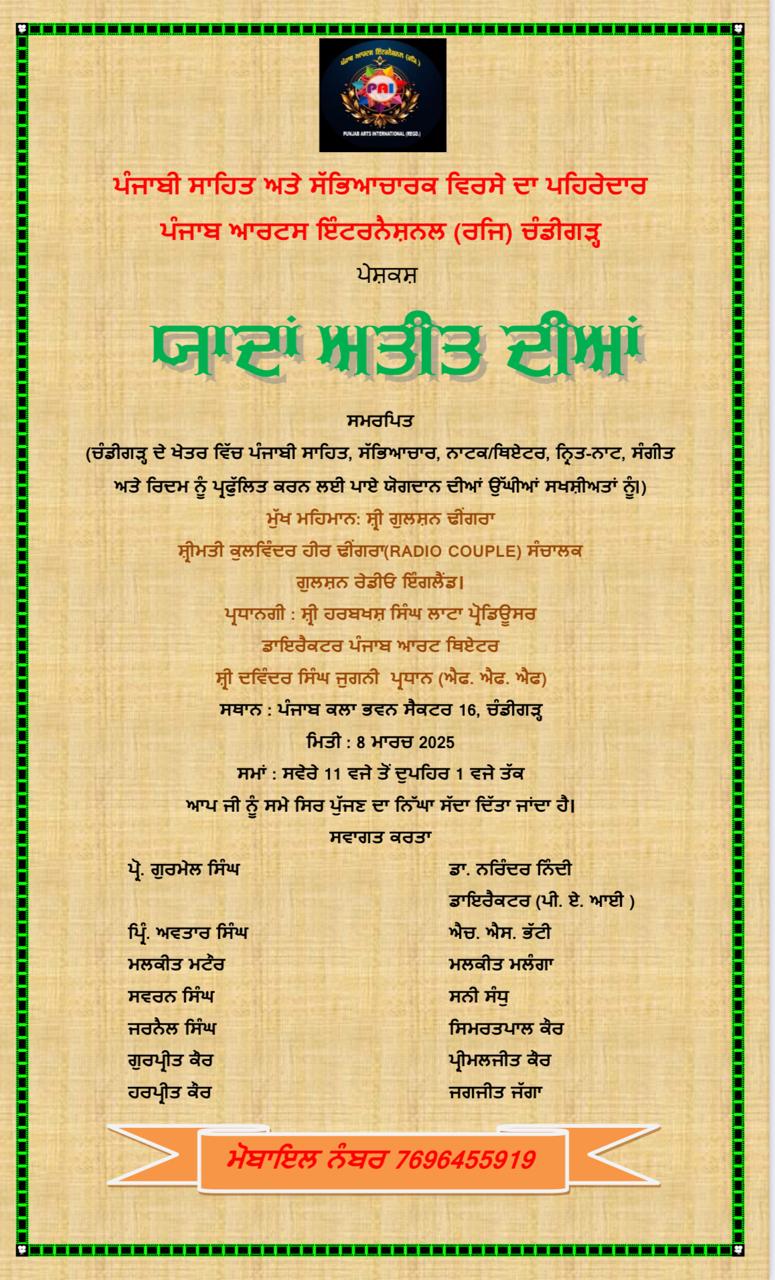 ਪੰਜਾਬ ਆਰਟਸ ਇੰਟਰਨੈਸ਼ਨਲ (ਰਜਿ )
PAI
PUNJAB ARTS INTERNATIONAL (REGD.)
ਪੰਜਾਬੀ ਸਾਹਿਤ ਅਤੇ ਸੱਭਿਆਚਾਰਕ ਵਿਰਸੇ ਦਾ ਪਹਿਰੇਦਾਰ
ਪੰਜਾਬ ਆਰਟਸ ਇੰਟਰਨੈਸ਼ਨਲ (ਰਜਿ) ਚੰਡੀਗੜ੍ਹ
ਪੇਸ਼ਕਸ਼
ਯਾਦਾਂ ਅਤੀਤ ਦੀਆਂ
ਸਮਰਪਿਤ
(ਚੰਡੀਗੜ੍ਹ ਦੇ ਖੇਤਰ ਵਿੱਚ ਪੰਜਾਬੀ ਸਾਹਿਤ, ਸੱਭਿਆਚਾਰ, ਨਾਟਕ/ਥਿਏਟਰ, ਨ੍ਰਿਤ-ਨਾਟ, ਸੰਗੀਤ
ਅਤੇ ਰਿਦਮ ਨੂੰ ਪ੍ਰਫੁੱਲਿਤ ਕਰਨ ਲਈ ਪਾਏ ਯੋਗਦਾਨ ਦੀਆਂ ਉੱਘੀਆਂ ਸਖਸ਼ੀਅਤਾਂ ਨੂੰ।)
ਮੁੱਖ ਮਹਿਮਾਨ: ਸ਼੍ਰੀ ਗੁਲਸ਼ਨ ਢੀਂਗਰਾ
ਸ਼੍ਰੀਮਤੀ ਕੁਲਵਿੰਦਰ ਹੀਰ ਢੀਂਗਰਾ(RADIO COUPLE) ਸੰਚਾਲਕ
ਗੁਲਸ਼ਨ ਰੇਡੀਓ ਇੰਗਲੈਂਡ।
ਪ੍ਰਧਾਨਗੀ : ਸ਼੍ਰੀ ਹਰਬਖਸ਼ ਸਿੰਘ ਲਾਟਾ ਪ੍ਰੋਡਿਊਸਰ
ਡਾਇਰੈਕਟਰ ਪੰਜਾਬ ਆਰਟ ਥਿਏਟਰ
ਸ਼੍ਰੀ ਦਵਿੰਦਰ ਸਿੰਘ ਜੁਗਨੀ ਪ੍ਰਧਾਨ (ਐਫ. ਐਫ. ਐਫ)
ਸਥਾਨ : ਪੰਜਾਬ ਕਲਾ ਭਵਨ ਸੈਕਟਰ 16, ਚੰਡੀਗੜ੍ਹ
ਮਿਤੀ : 8 ਮਾਰਚ 2025
ਸਮਾਂ : ਸਵੇਰੇ 11 ਵਜੇ ਤੋਂ ਦੁਪਹਿਰ 1 ਵਜੇ ਤੱਕ
ਆਪ ਜੀ ਨੂੰ ਸਮੇ ਸਿਰ ਪੁੱਜਣ ਦਾ ਨਿੱਘਾ ਸੱਦਾ ਦਿੱਤਾ ਜਾਂਦਾ ਹੈ।
ਸਵਾਗਤ ਕਰਤਾ
ਪ੍ਰੋ. ਗੁਰਮੇਲ ਸਿੰਘ ਡਾ. ਨਰਿੰਦਰ ਨਿੰਦੀ
ਡਾਇਰੈਕਟਰ (ਪੀ. ਏ. ਆਈ )
ਪ੍ਰਿੰ. ਅਵਤਾਰ ਸਿੰਘ ਐਚ. ਐਸ. ਭੱਟੀ
ਮਲਕੀਤ ਮਟੌਰ ਮਲਕੀਤ ਮਲੰਗਾ
ਸਵਰਨ ਸਿੰਘ ਸਨੀ ਸੰਧੂ
ਜਰਨੈਲ ਸਿੰਘ ਸਿਮਰਤਪਾਲ ਕੌਰ
ਗੁਰਪ੍ਰੀਤ ਕੌਰ ਪ੍ਰੀਮਲਜੀਤ ਕੌਰ
ਹਰਪ੍ਰੀਤ ਕੌਰ ਜਗਜੀਤ ਜੱਗਾ
ਮੋਬਾਇਲ ਨੰਬਰ 7696455919